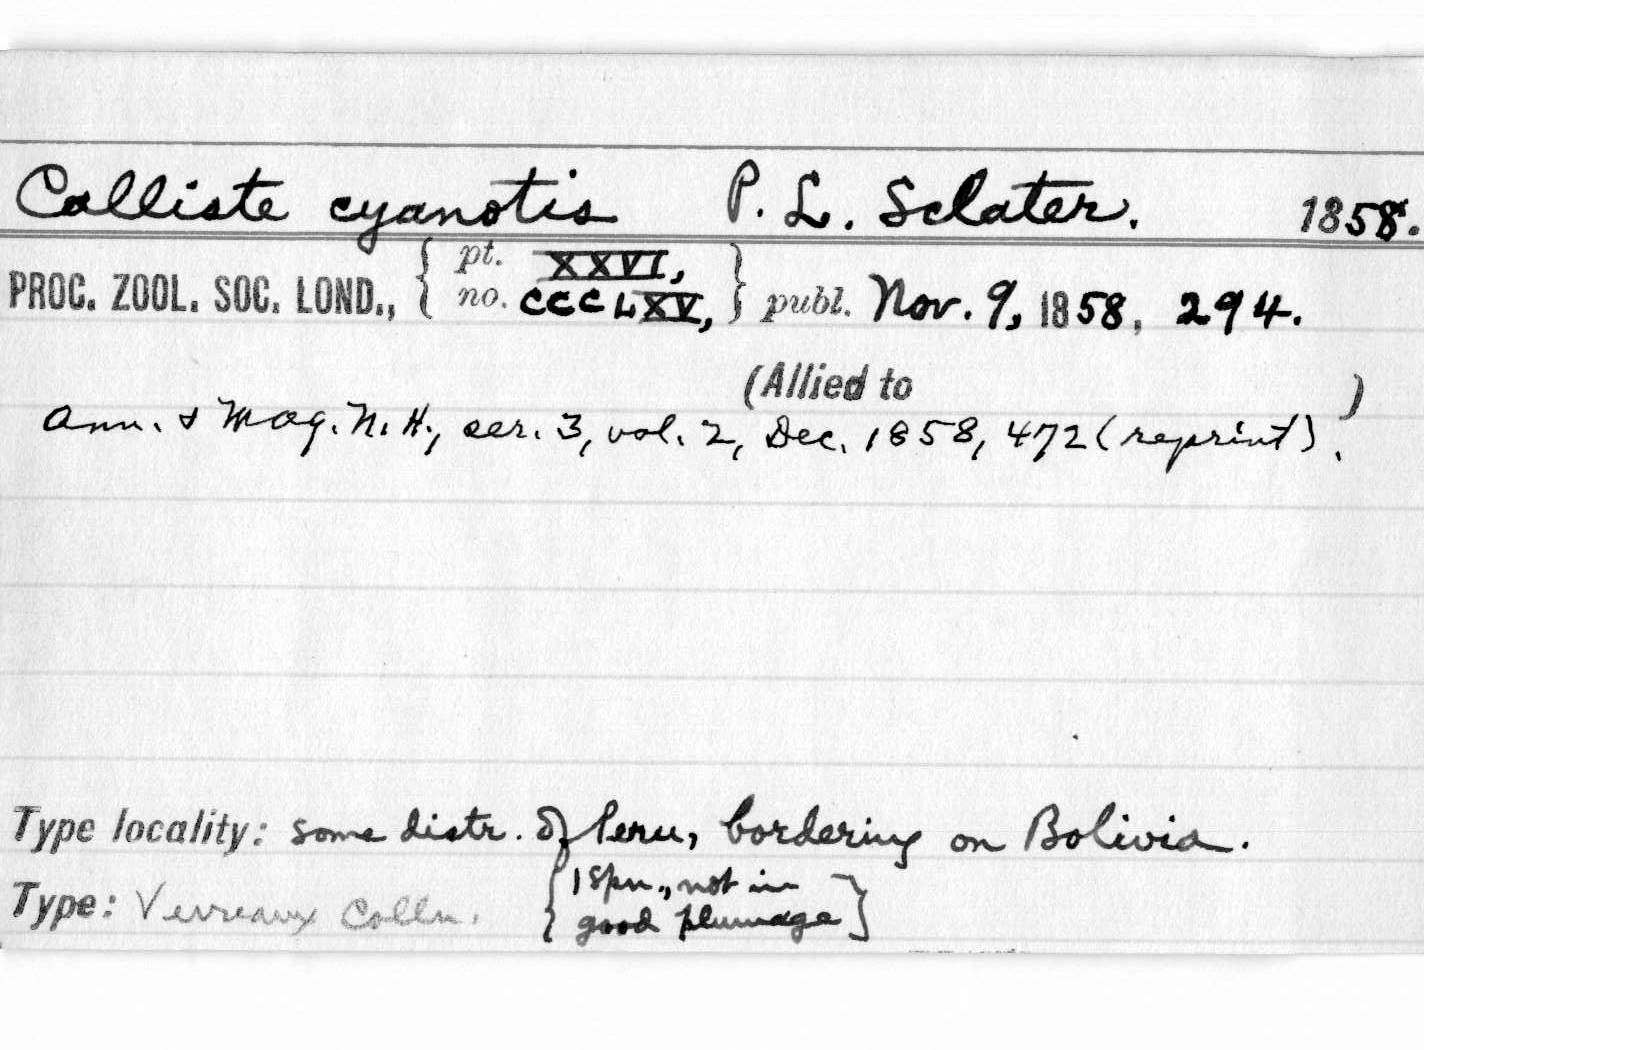 Calliste cyanotis P. L. Sclater. 1858.
PROC. ZOOL. SOC. LOND., { pt. XXVI, no. CCCLXV, } publ. Nov. 9, 1858, 294.
(Allied to )
Ann. & Mag. N. H., ser. 3, vol. 2, Dec. 1858, 472 (reprint).
Type locality: some distr. of Peru, bordering on Bolivia.
Type: Verreaux Colln. { 1 spn., not in
good plumage }